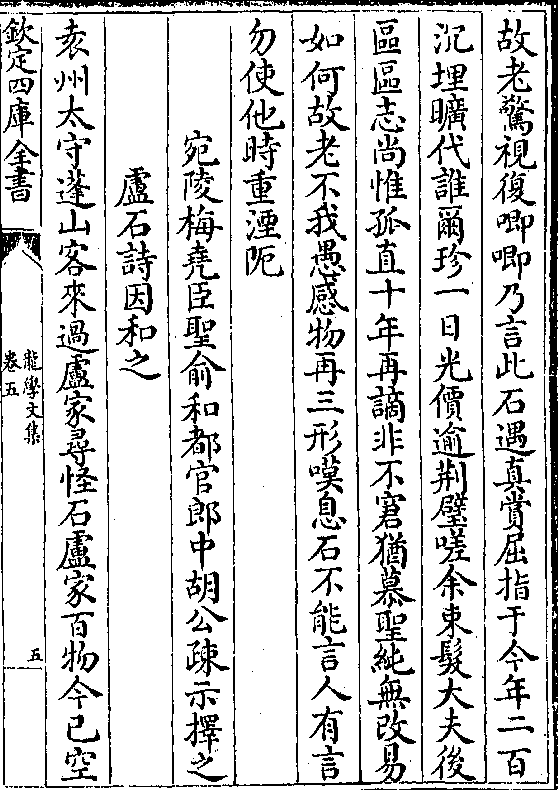 故老驚視復唧唧乃言此石遇真賞屈指于今年二百
沉埋曠代誰爾珍一日光價逾荆璧嗟余束髮大夫後
區區志尚惟孤直十年再謫非不窘猶慕聖純無改易
如何故老不我愚感物再三形嘆息石不能言人有言
勿使他時重湮阨
宛陵梅堯臣聖俞和都官郎中胡公疎示擇之
盧石詩因和之
袁州太守蓬山客來過盧家尋怪石盧家百物今已空
欽定四庫全書
龍學文集
卷五
五